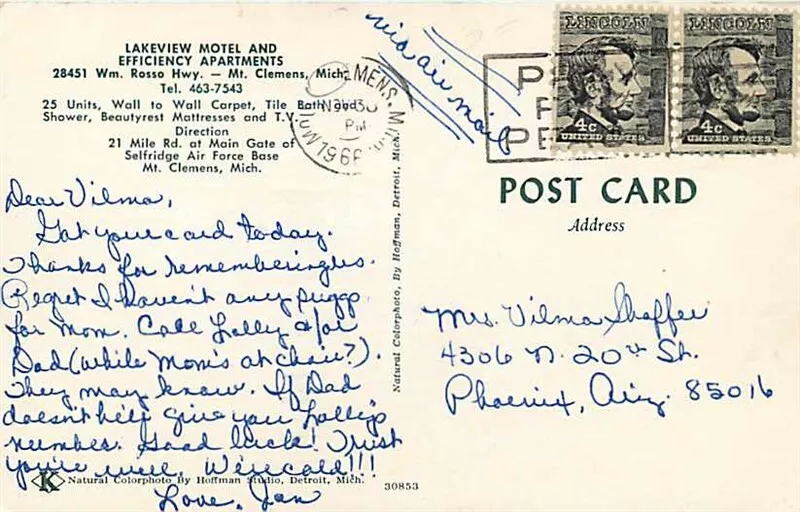 LAKEVIEW MOTEL AND
EFFICIENCY APARTMENTS
28451 Wm. Rosso Hwy. — Mt. Clemens, Mich.
Tel. 463-7543
25 Units, Wall to Wall Carpet, Tile Bath and
Shower, Beautyrest Mattresses and T.V.
Direction
21 Mile Rd. at Main Gate of
Selfridge Air Force Base
Mt. Clemens, Mich.
Dear Vilma,
Got your card today.
Thanks for remembering us.
Regret I haven't any
for Mom. Call Lolly &/or
Dad (while Mom's at choir?).
They may know. If Dad
doesn't help give you Lolly's
number. Good luck! Trust
you're well. We're cold!!!
Love, Jan
K Natural Colorphoto By Hoffman Studio, Detroit, Mich.
30853
Natural Colorphoto, By Hoffman, Detroit, Mich.
via air mail
CLEMENS, MICH.
NOV 30
PM
1966
LINCOLN
4c
UNITED STATES
LINCOLN
4c
UNITED STATES
POST CARD
Address
Mrs. Vilma Shaffer
4306 N. 20th St.
Phoenix, Ariz. 85016